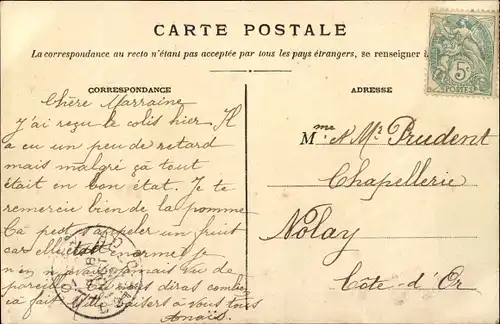 CARTE POSTALE
La correspondance au recto n'étant pas acceptée par tous les pays étrangers, se renseigner
CORRESPONDANCE
Chère Marraine
J'ai reçu le colis hier. Il
a eu un peu de retard
mais malgré çà tout
était en bon état. Je te
remercie bien de la pomme
Ça peut s'appeler un fruit
car elle était énorme! On
n'en avait jamais vu de
pareille. Tu diras combien
à fait baisers à vous tous
Anaïs.
ADRESSE
Mme et Mr Prudent
Chapellerie
Nolay
Côte-d'Or
5c
POSTES